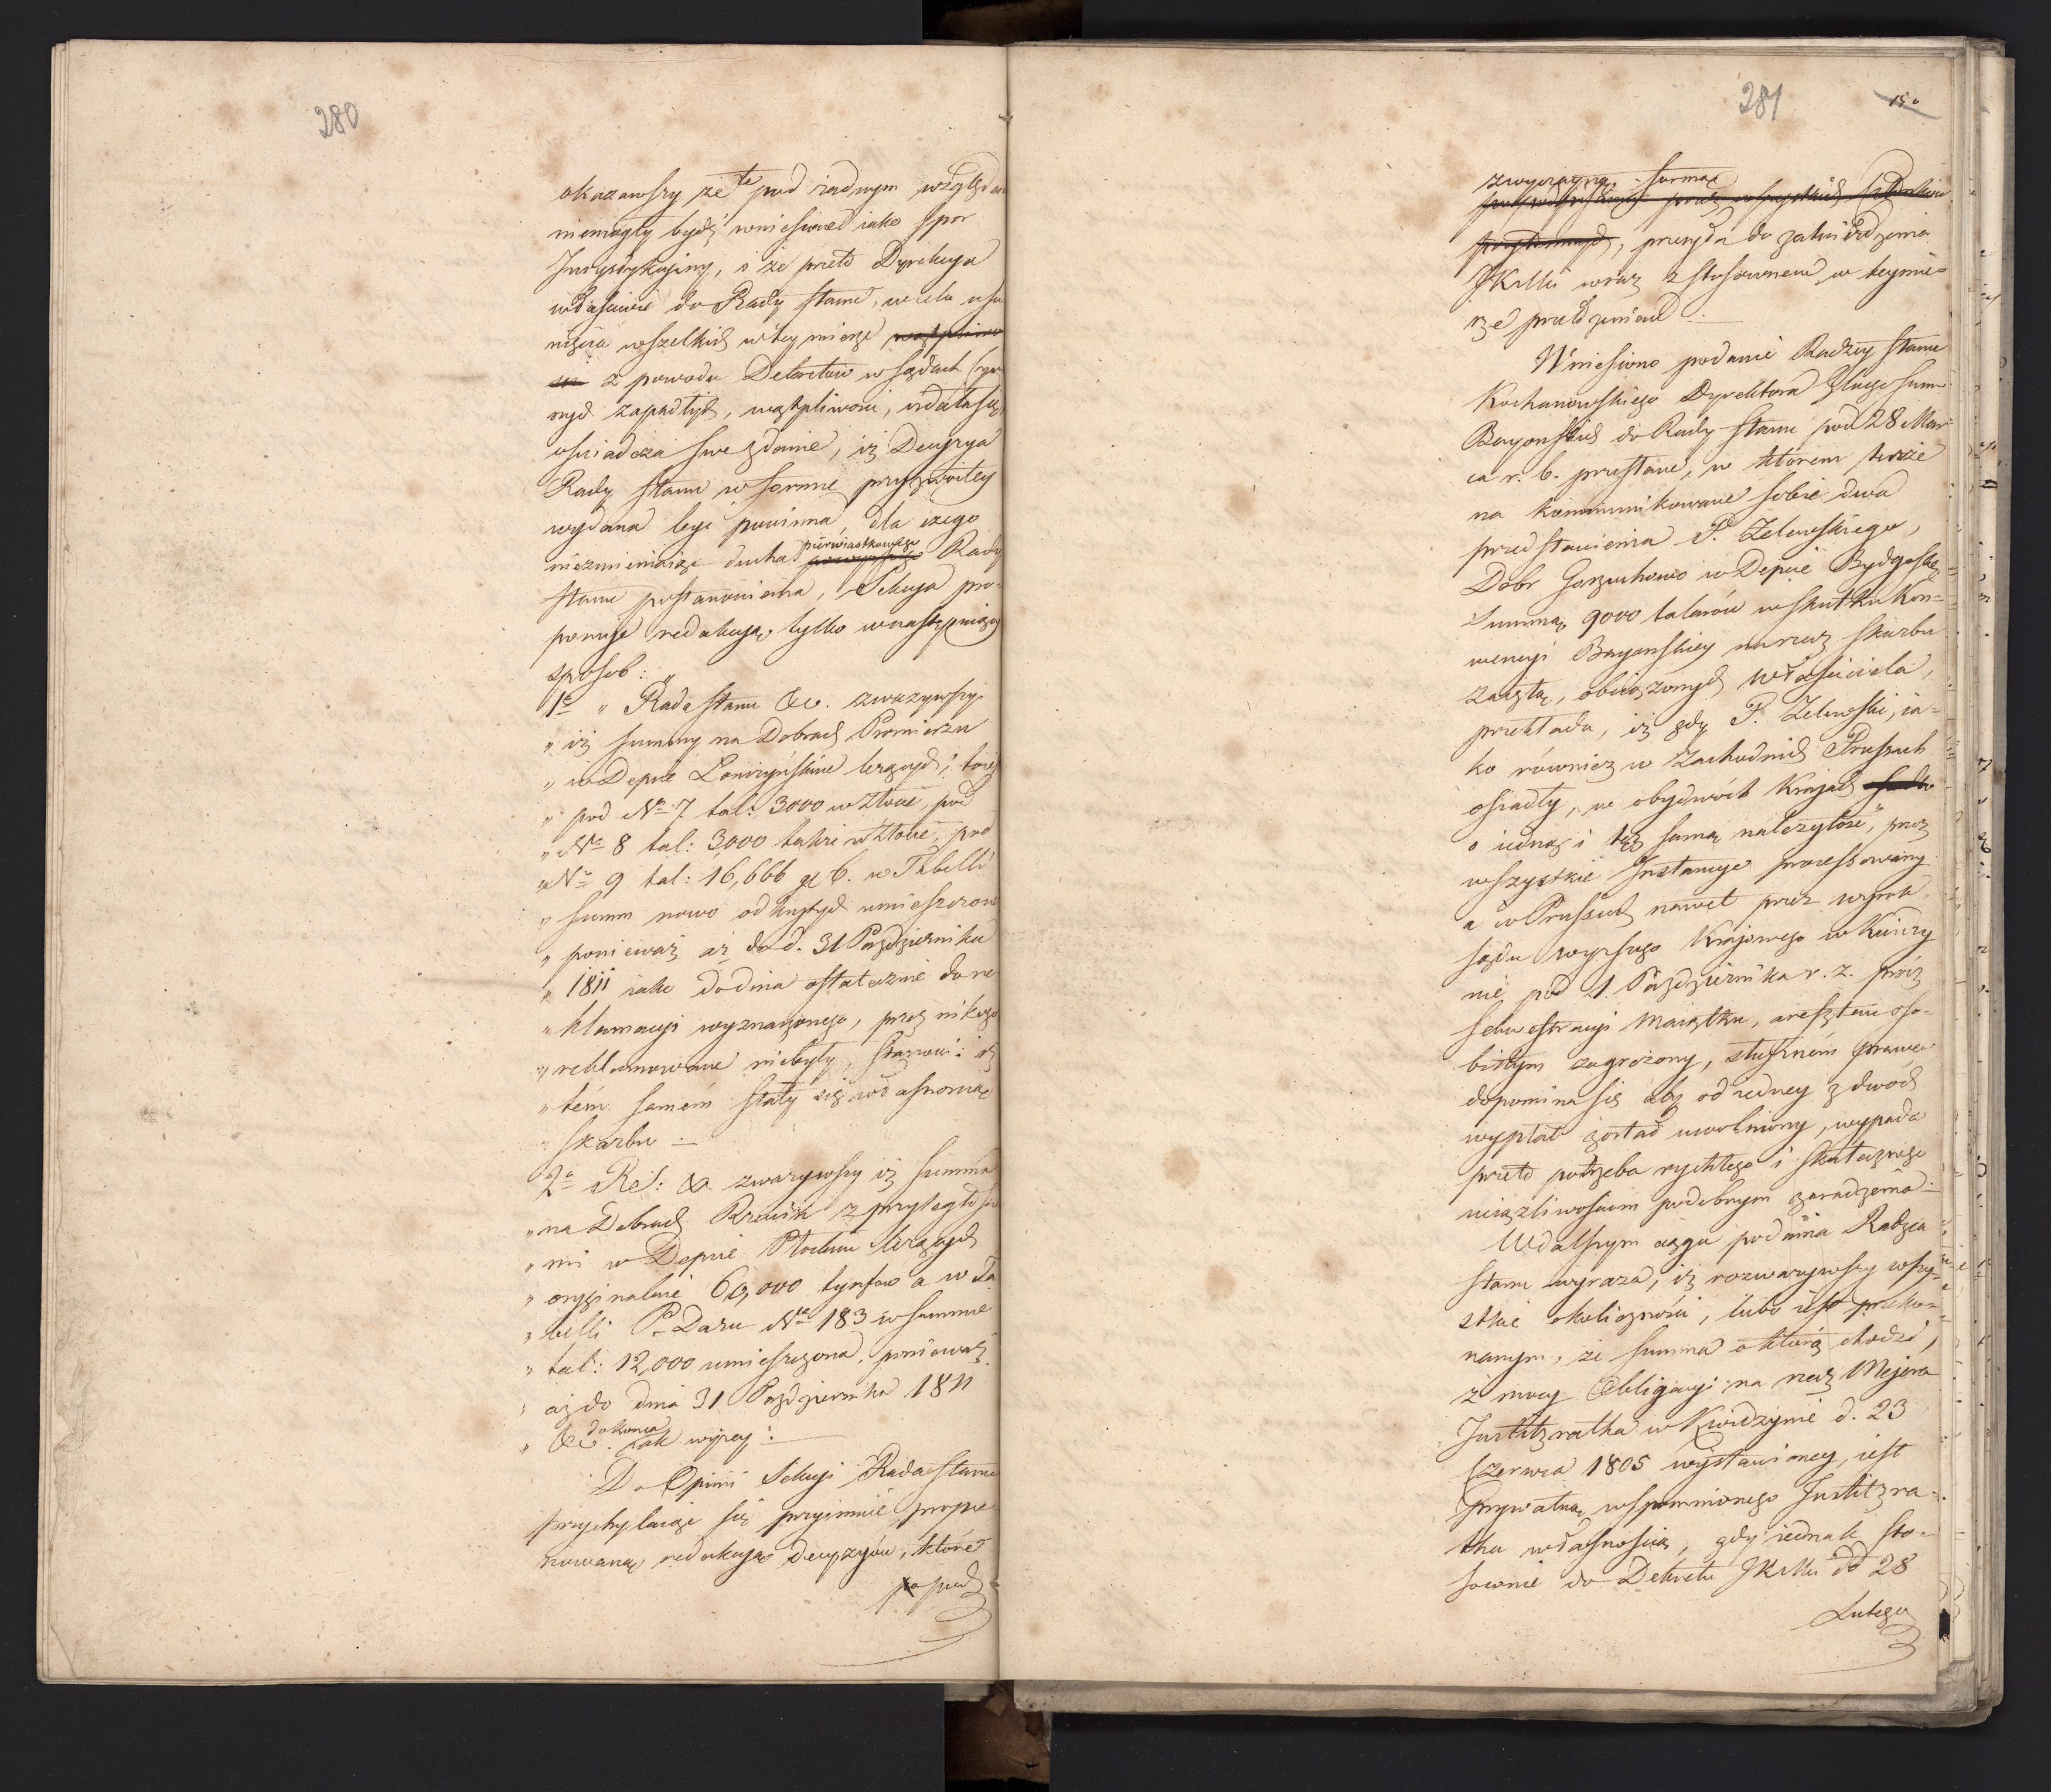 280
okazawszy że te pod żadnym względem
niemogły bydź wniesione iako spor
Jurysdykcyiny, i że przeto Dyrekcya
właściwie do Rady Stanu, w celu usu
nięcia wszelkich w tey mierze
z powodu Dekretów w sądach
nych zapadłych, wątpliwości, udała się
oświadcza swe zdanie, iż Decyzya
Rady Stanu w formie przyzwoitey
wydana być powinna, dla czego
niezmieniaiąc ducha pierwiastkowego Rady
Stanu postanowienia, Sekcya pro-
ponuie redakcyą tylko w następuiący
sposób:
1e „ Rada Stanu &c. zważywszy
„ iż summy na Dobrach Promierzu
„ w Depcie Łomżyńskim leżących, to iest
„ pod No 7 tal: 3000 w złocie, pod
„ No 8 tal: 3000 także w złocie, pod
„ No 9 tal: 16,666 gr 6. w Tabelli
„ Summ nowo odkrytych umieszczone
„ ponieważ aż do d. 31 Października
„ 1811 iako do dnia ostatecznie do re
„ klamacyi wyznaczonego, przez nikogo
„ reklamowane niebyły, stanowi: iż
„ tém samém stały się własnością
„ Skarbu —
2e Re: &c zważywszy iż summa
„ na Dobrach z przyległościa
„ mi w Depcie Płockim leżących
„ oryginalnie 60,000 tynfow a w Ta
„ belli P. Daru No 183 w summie
„ tal: 12,000 umieszczona, ponieważ
„ aż do dnia 31 Października 1811
„ &c. do końca iak wyżey: —
Do Opinii Sekcyi Rada Stanu
przychylaiąc się przyimuie propo
nowaną redakcyą decyzyów, które
pod
281
150
zwyczayną formą
, przeydą do zatwierdzenia
JKMci wraz z stosownem w teymie-
rze przełożeniem —
Wniesiono podanie Radzcy Stanu
Kochanowskiego Dyrektora Jlnego Summ
Bayońskich do Rady Stanu pod 28 Mar
ca r. b. przesłane, w którem tenże
na kommunikowane sobie dwa
przedstawienia P. Zelewskiego,
Dobr Garzuchowo w Depcie Bydgoskim
Summą 9000 talarów w skutku Kon-
wencyi Bayońskiey na rzecz Skarbu
zaiętą, obciążonych właściciela,
przekłada, iż gdy P. Zelewski, ia-
ko również w Zachodnich Prusach
osiadły, w obydwóch Kraiach
o iedną i tęż samą należytość, przez
wszystkie Instancye processowany
a w Prusiech nawet przez wyrok
sądu wyższego Kraiowego w Kwidzy
nie pod 1. Października r. z. prócz
sekwestracyi Maiątku, aresztem oso-
bistym zagrożony, słuszném prawem
dopomina się aby od iedney z dwóch
wypłat został uwolniony, wypada
przeto potrzeba rychłego i skutecznego
uciążliwościom podobnym zaradzenia —
W dalszym ciągu podania Radzca
Stanu wyraża, iż rozważywszy wszy-
stkie okoliczności, lubo iest przeko-
nanym, że summa o którą chodzi,
z mocy Obligacyi na rzecz Mejera
Justitzratha w Kwidzynie d. 23
Czerwca 1805 wystawioney, iest
prywatną wspomnionego Justitzra-
tha własnością, gdy iednak sto-
sownie do Dekretu JKMci dd 28
Lutego